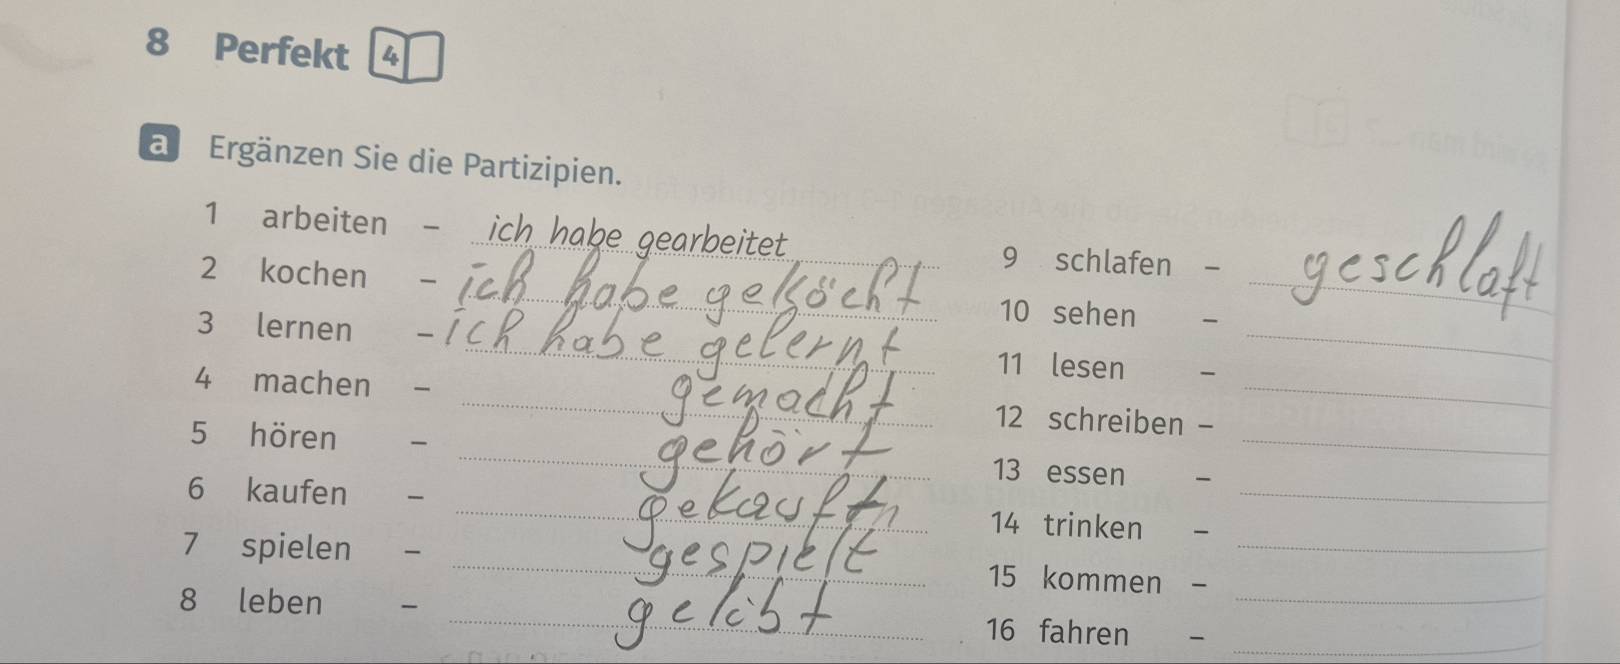 8 Perfekt 4
a Ergänzen Sie die Partizipien.
1 arbeiten – ich habe gearbeitet
2 kochen – ich habe geköcht
3 lernen – ich habe gelernt
4 machen – gemacht
5 hören – gehört
6 kaufen – gekauft
7 spielen – gespielt
8 leben – gelibt
9 schlafen – geschlaft
10 sehen –
11 lesen –
12 schreiben –
13 essen –
14 trinken –
15 kommen –
16 fahren –